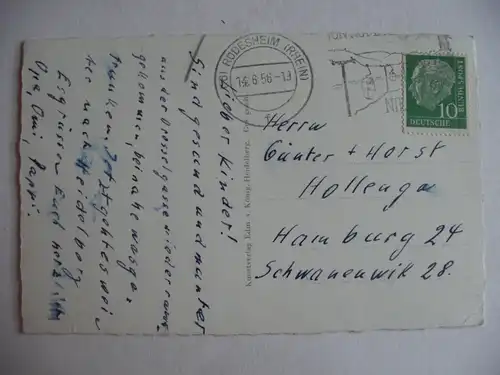 Lieber Kinder!
Sind gesund und munter
aus der Drosselgasse wieder raus-
gekommen, beinahe wasga-
trunken. Jetzt geht es wei
ter nach Heidelberg
Es grüssen Euch herzlich
Opa Omi, Pappi.
Kunstverlag Edm. v. König, Heidelberg.
RÜDESHEIM (RHEIN)
DEUTSCHE
BUNDESPOST
10
Herrn
Günter + Horst
Hollenga
Hamburg 24
Schwanenwik 28.